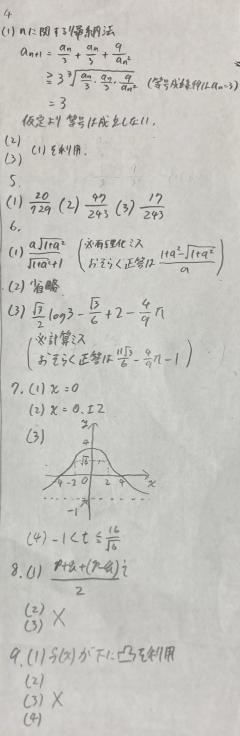 4
(1) nに関する帰納法
a_{n+1} = a_n/3 + a_n/3 + 9/a_n²
≧ 3 ∛(a_n/3 · a_n/3 · 9/a_n²) (等号成立条件は a_n=3)
= 3
仮定より等号は成立しない.
(2)
(3) (1)を利用.
5.
(1) 20/729 (2) 47/243 (3) 17/243
6.
(1) a√(1+a²)/(√(1+a²)+1) (※有理化ミス
おそらく正答は (1+a²-√(1+a²))/a)
(2) 省略
(3) √3/2 log3 - √3/6 + 2 - 4/9 π
(※計算ミス
おそらく正答は 11√3/6 - 4/9 π - 1)
7. (1) x=0
(2) x=0, ±2
(3)
4
√6
-4 -2 0 2 4 x
-1
(4) -1<t≦16/√6
8. (1) i/2
(2)
(3) ×
9. (1) f(x)が下に凸を利用
(2)
(3) ×
(4)